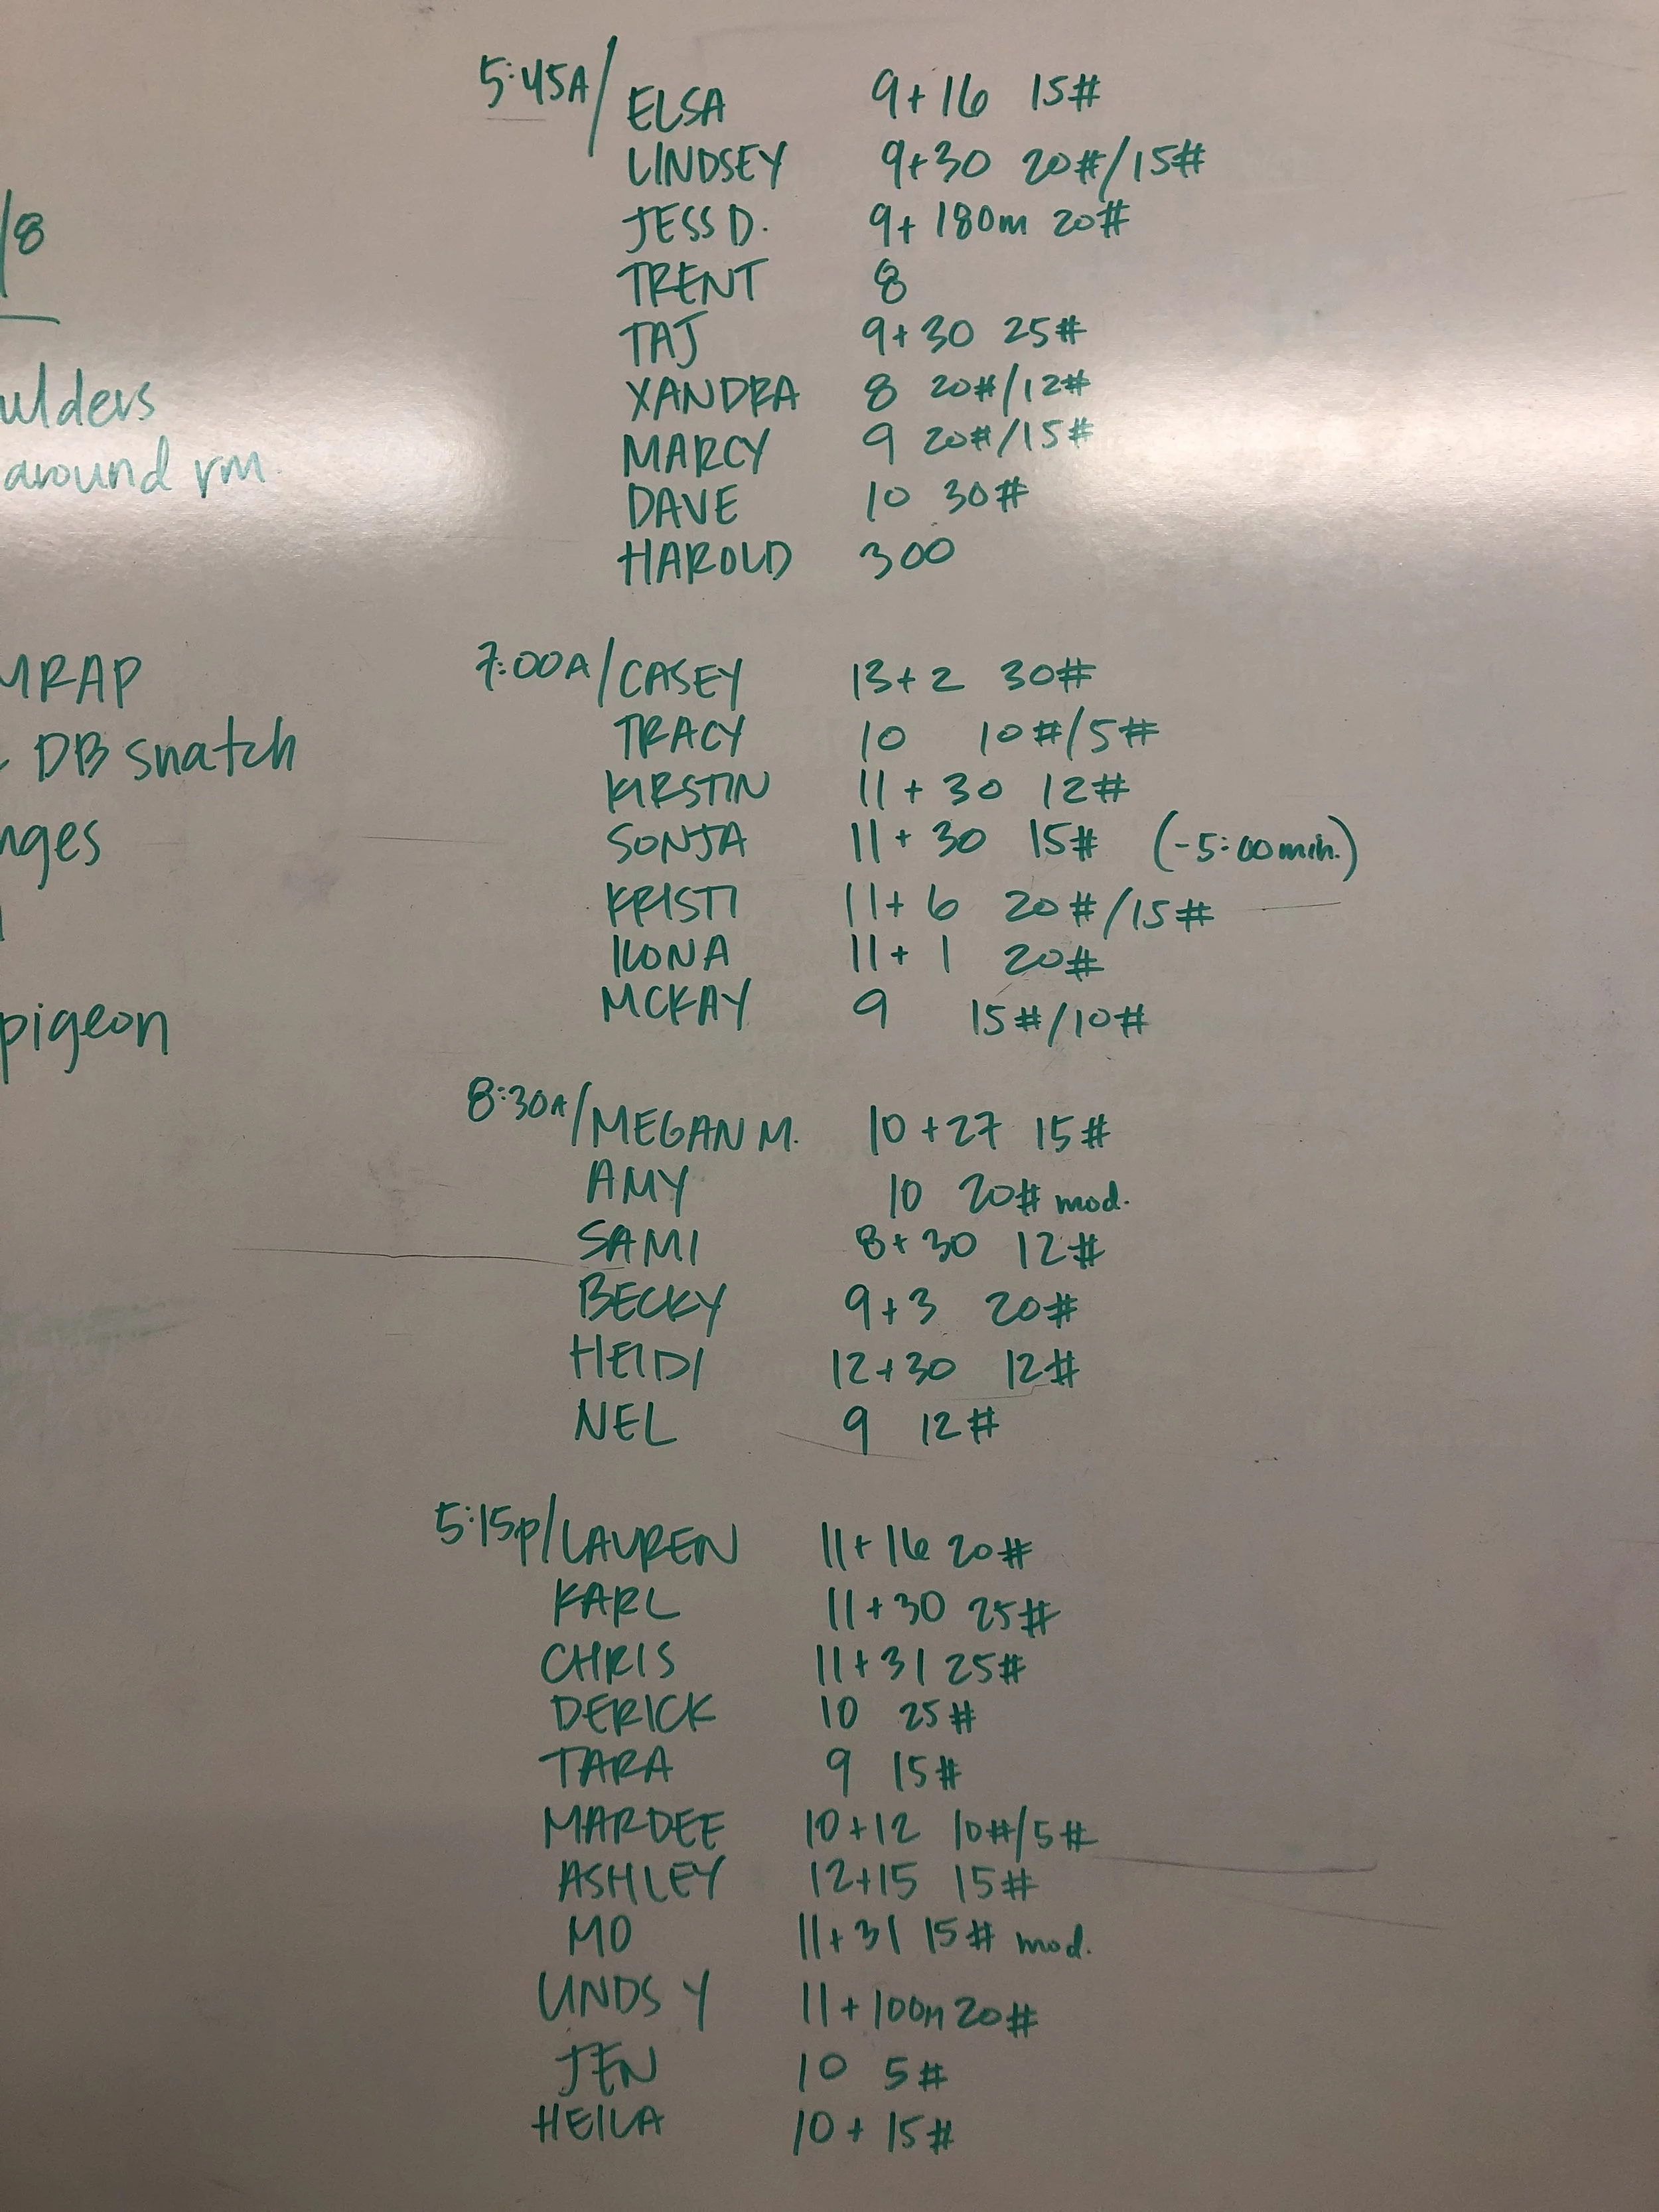 /8
ulders
around rm.
MRAP
DB snatch
nges
pigeon
5:45A/ ELSA 9+16 15#
LINDSEY 9+30 20#/15#
JESS D. 9+ 180m 20#
TRENT 8
TAJ 9+30 25#
XANDRA 8 20#/12#
MARCY 9 20#/15#
DAVE 10 30#
HAROLD 300
7:00A/ CASEY 13+2 30#
TRACY 10 10#/5#
KIRSTIN 11+30 12#
SONJA 11+30 15# (-5:00min.)
KRISTI 11+6 20#/15#
ILONA 11+1 20#
MCKAY 9 15#/10#
8:30A/ MEGAN M. 10+27 15#
AMY 10 20# mod.
SAMI 8+30 12#
BECKY 9+3 20#
HEIDI 12+30 12#
NEL 9 12#
5:15p/ LAUREN 11+16 20#
KARL 11+30 25#
CHRIS 11+31 25#
DERICK 10 25#
TARA 9 15#
MARDEE 10+12 10#/5#
ASHLEY 12+15 15#
MO 11+31 15# mod.
LINDS Y 11+100m 20#
JEN 10 5#
HEILA 10+ 15#